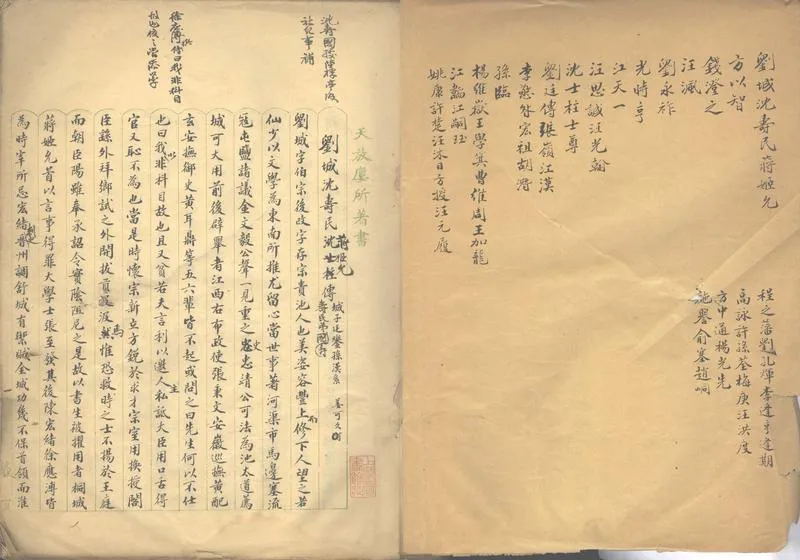 劉城沈壽民蔣姬允
方以智
錢澄之
汪渢
劉永祚
光時亨
江天一
汪思誠汪光翰
沈士柱士尊
劉廷傳張嶺江漢
李宏祖胡澥
孫臨
楊維嶽王學箕曹維周王加龍
江嗣珏
姚康許楚汪沐日方授汪元履
程之藩劉孔煇李達李逵期
高詠許孫荃梅庚汪洪度
方中通楊光先
施譽俞塞趙
天放廔所著書
沈壽國
社化事補
徐應溥傳曰我非科目
劉城沈壽民沈士柱傳
蔣姬允
城子廷鑾孫漢系
壽民弟國
姜可久
劉城字伯宗後改字存宗貴池人也美姿容豐上而修下人望之若
仙少以文學為東南所推尤留心當世事著河渠市馬邊塞流
寇屯鹽諸議金文毅公聲一見重之史忠清公可法為池太道薦
城可大用前後辟舉者江西右布政使張秉文安廬巡撫黃配
玄安撫御史黃耳鼎等五六輩皆不起或問之曰先生何以不仕
也曰我以非科目故也且又貧若夫言利以邀人主私詆大臣用口舌得
官又恥不為也當是時懷宗新立方銳於求才宗室用換授閣
臣繇外拜鄉試之外開拔貢汲汲焉惟恐救時之士不揚於王庭
而朝臣陽雖奉承詔令實陰阻尼之是故以書生被擢用者桐城
蔣姬允首以言事得罪大學士張至發其後陳宏緒徐應溥皆
為時宰所忌宏緒刺晉州調舒城有禦賊全城功幾不保首領而淮